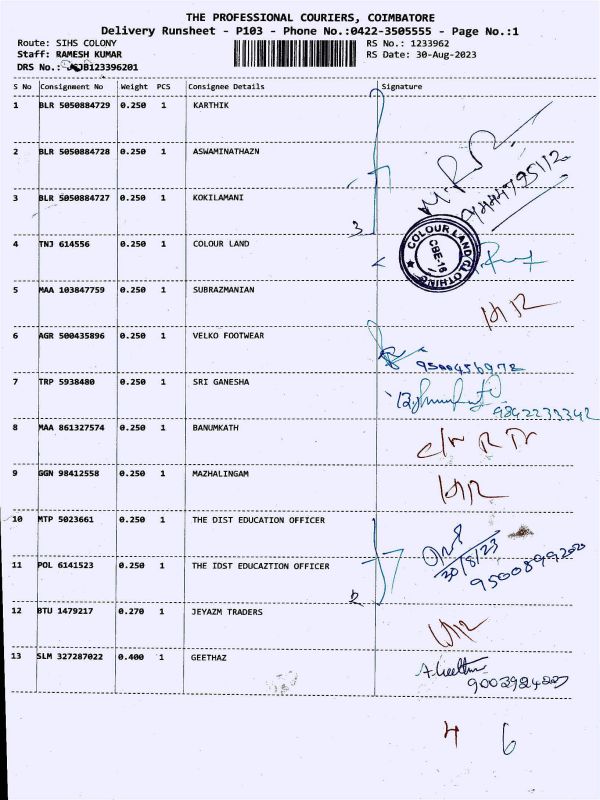 THE PROFESSIONAL COURIERS, COIMBATORE
Delivery Runsheet - P103 - Phone No.:0422-3505555 - Page No.:1
Route: SIHS COLONY RS No.: 1233962
Staff: RAMESH KUMAR RS Date: 30-Aug-2023
DRS No.: B123396201
S No Consignment No Weight PCS Consignee Details Signature
1 BLR 5050884729 0.250 1 KARTHIK
2 BLR 5050884728 0.250 1 ASWAMINATHAZN
9444795112
3 BLR 5050884727 0.250 1 KOKILAMANI
3
4 TNJ 614556 0.250 1 COLOUR LAND
COLOUR LAND CLOTHING
CBE-16
5 MAA 103847759 0.250 1 SUBRAZMANIAN
6 AGR 500435896 0.250 1 VELKO FOOTWEAR
9500456972
7 TRP 5938480 0.250 1 SRI GANESHA
9842233342
8 MAA 861327574 0.250 1 BANUMKATH
9 GGN 98412558 0.250 1 MAZHALINGAM
10 MTP 5023661 0.250 1 THE DIST EDUCATION OFFICER
30/8/23
11 POL 6141523 0.250 1 THE IDST EDUCAZTION OFFICER
2
12 BTU 1479217 0.270 1 JEYAZM TRADERS
13 SLM 327287022 0.400 1 GEETHAZ
4 6